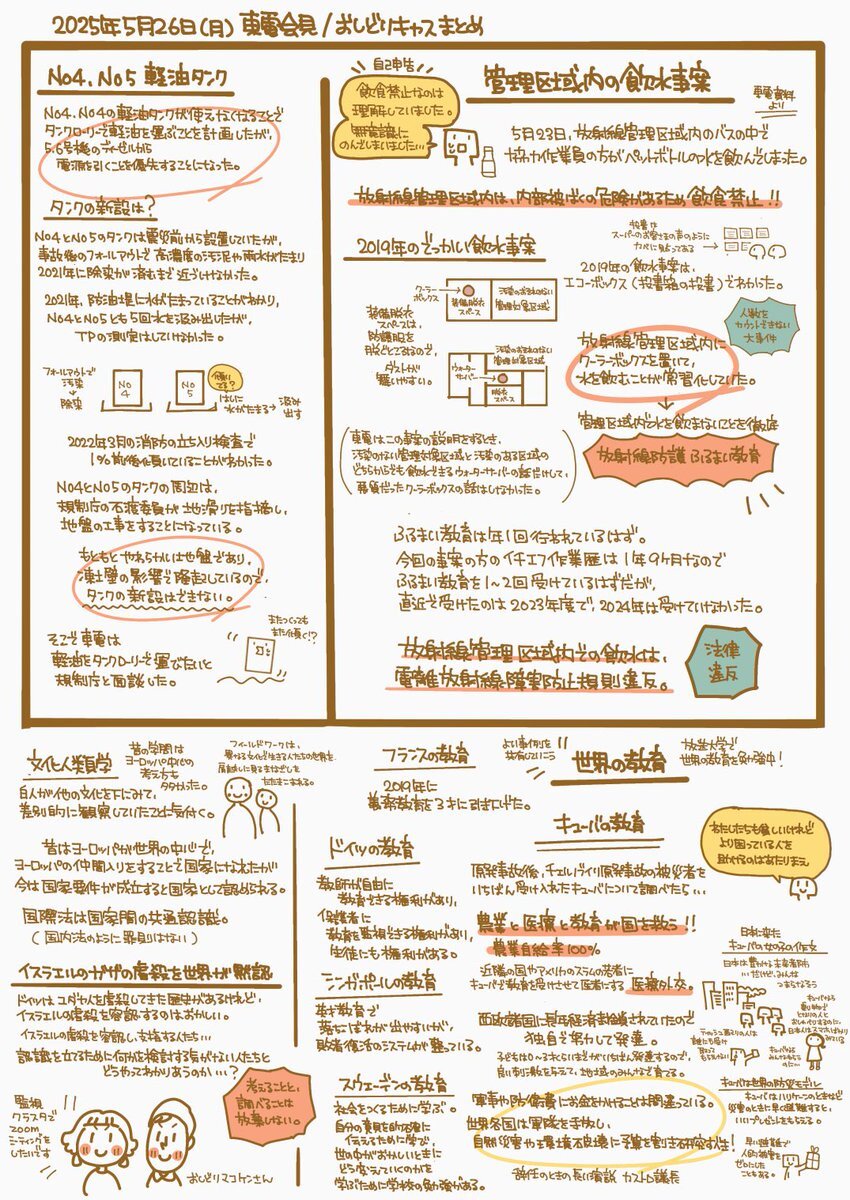 2025年5月26日(月) 東電会見/おしどりキャスまとめ
No4、No5 軽油タンク
No4、No4の軽油タンクが使えなくなることで
タンクローリーで軽油を運ぶことを計画したが、
5.6号機のディーゼルから
電源を引くことを優先することになった。
タンクの新設は?
No4とNo5のタンクは震災前から設置していたが、
事故後のフォールアウトで高濃度の汚泥や雨水がたまり
2021年に除染が済むまで近づけなかった。
2021年、防油堤に水がたまっていることがわかり、
No4とNo5とも5回水を汲み出したが、
TPの測定はしていなかった。
フォールアウトで
汚染
↓
除染
No
4
No
5
傾い
てる?
はしに
水がたまる→
汲み
出す
2022年3月の消防の立ち入り検査で
1%前後傾いていることがわかった。
No4とNo5のタンクの周辺は、
規制庁の石渡委員が地滑りを指摘し、
地盤の工事をすることになっている。
もともとやわらかい地盤であり、
凍土壁の影響で隆起しているので、
タンクの新設はできない。
またつくっても
また傾く!?
そこで東電は
軽油をタンクローリーで運びたいと
規制庁と面談した。
自己申告
飲食禁止なのは
理解していました。
無意識に
のんでしまいました…
管理区域内の飲水事案
東電資料
より
5月23日、放射線管理区域内のバスの中で
協力作業員の方がペットボトルの水を飲んでしまった。
放射線管理区域内は、内部被ばくの危険があるため飲食禁止!!
2019年のでっかい飲水事案
投書は
スーパーのお客さまの声のように
カベに貼ってある
2019年の飲水事案は、
エコーボックス(投書箱の投書)でわかった。
クーラー
ボックス
装備脱衣
スペース
汚染のおそれのない
管理対象区域
装備脱衣
スペースは、
防護服を
脱ぐところなので、
ダストが
舞いやすい。
汚染のおそれのない
管理対象区域
ウォーター
サーバー
脱衣
スペース
人数を
カウントできない
大事件
放射線管理区域内に
クーラーボックスを置いて、
水を飲むことが常習化していた。
↓
管理区域内で水を飲まないことを徹底
放射線防護 ふるまい教育
東電はこの事案の説明をするとき、
汚染のない管理対象区域と汚染のある区域の
どちらからでも飲水できるウォーターサーバーの話だけして、
悪質だったクーラーボックスの話はしなかった。
ふるまい教育は年1回行われているはず。
今回の事案の方のイチエフ作業歴は1年9ヶ月なので
ふるまい教育を1~2回受けているはずだが、
直近で受けたのは2023年度で、2024年は受けていなかった。
放射線管理区域内での飲水は、
電離放射線障害防止規則違反。
法律
違反
文化人類学
昔の学問は
ヨーロッパ中心の
考え方も
多かった。
フィールドワークは、
異なる文化で生きる人たちの世界を
白人が他の文化を下にみて、
差別的に観察していたことに気付く。
昔はヨーロッパが世界の中心で、
ヨーロッパの仲間入りをすることで国家になれたが
今は国家要件が成立すると国家として認められる。
国際法は国家間の共通認識。
(国内法のように罪則はない)
イスラエルのガザの虐殺を世界が黙認
ドイツはユダヤ人を虐殺してきた歴史があるけれど、
イスラエルの虐殺を容認するのはおかしい。
イスラエルの虐殺を容認し、支援する人たち…
認識を立てるために何かを検討する気がない人たちと
どうやってわかりあうのか…?
考えることと、
調べることは
放棄しない。
監視
クラスタで
zoom
ミーティングを
したいです
おしどりマコケンさん
フランスの教育
2019年に
義務教育を3才に引き下げた。
ドイツの教育
教師が自由に
教育できる権利があり、
保護者に
教育を監視できる権利があり、
生徒にも権利がある。
シンガポールの教育
英才教育で
落ちこぼれが出やすいが、
敗者復活のシステムが整っている。
スウェーデンの教育
社会をつくるために学ぶ。
自分の意見を的確に
伝えるために学び、
世の中がおかしいときに
どう変えていくのかを
学ぶために学校の勉強がある。
よい事例を
共有していこう
世界の教育
放送大学で
世界の教育を勉強中!
キューバの教育
わたしたちも貧しいけれど
より困っている人を
助けるのはあたりまえ
原発事故後、チェルノブイリ原発事故の被災者を
いちばん受け入れたキューバについて調べたら…
農業と医療と教育が国を救う!!
農業自給率100%
近隣の国やアメリカのスラムの若者に
キューバで教育を受けさせて医者にする 医療外交。
西欧諸国に長年経済封鎖されていたので
独自で努力して発展。
子どもは0~3才くらいまでがいちばん発達するので、
良い刺激を与えて、地域のみんなで育てる。
軍事や防衛費にお金をかけることは間違っている。
世界各国は軍隊を手放し、
自然災害や環境破壊に予算を割き研究すべき!
辞任のときの長い演説 カストロ議長
日本に来た
キューバの女の子の作文
キューバは世界の防災モデル
キューバはハリケーンのときなど
災害のときに早く避難すると、
いいプレゼントをもらえる。
早い避難で
人的被害を
ゼロにした
こともある。